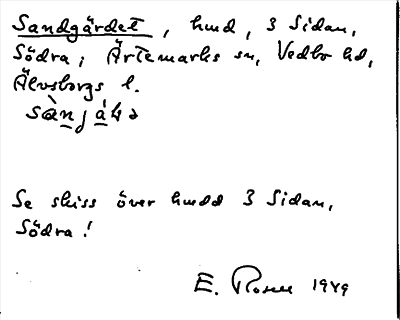 Sandgärdet, hmd, 3 Sidan,
Södra, Ärtemarks sn, Vedbo hd,
Älvsborgs l.
Se skiss över hmdd 3 Sidan,
Södra!
E. Rosell 1949